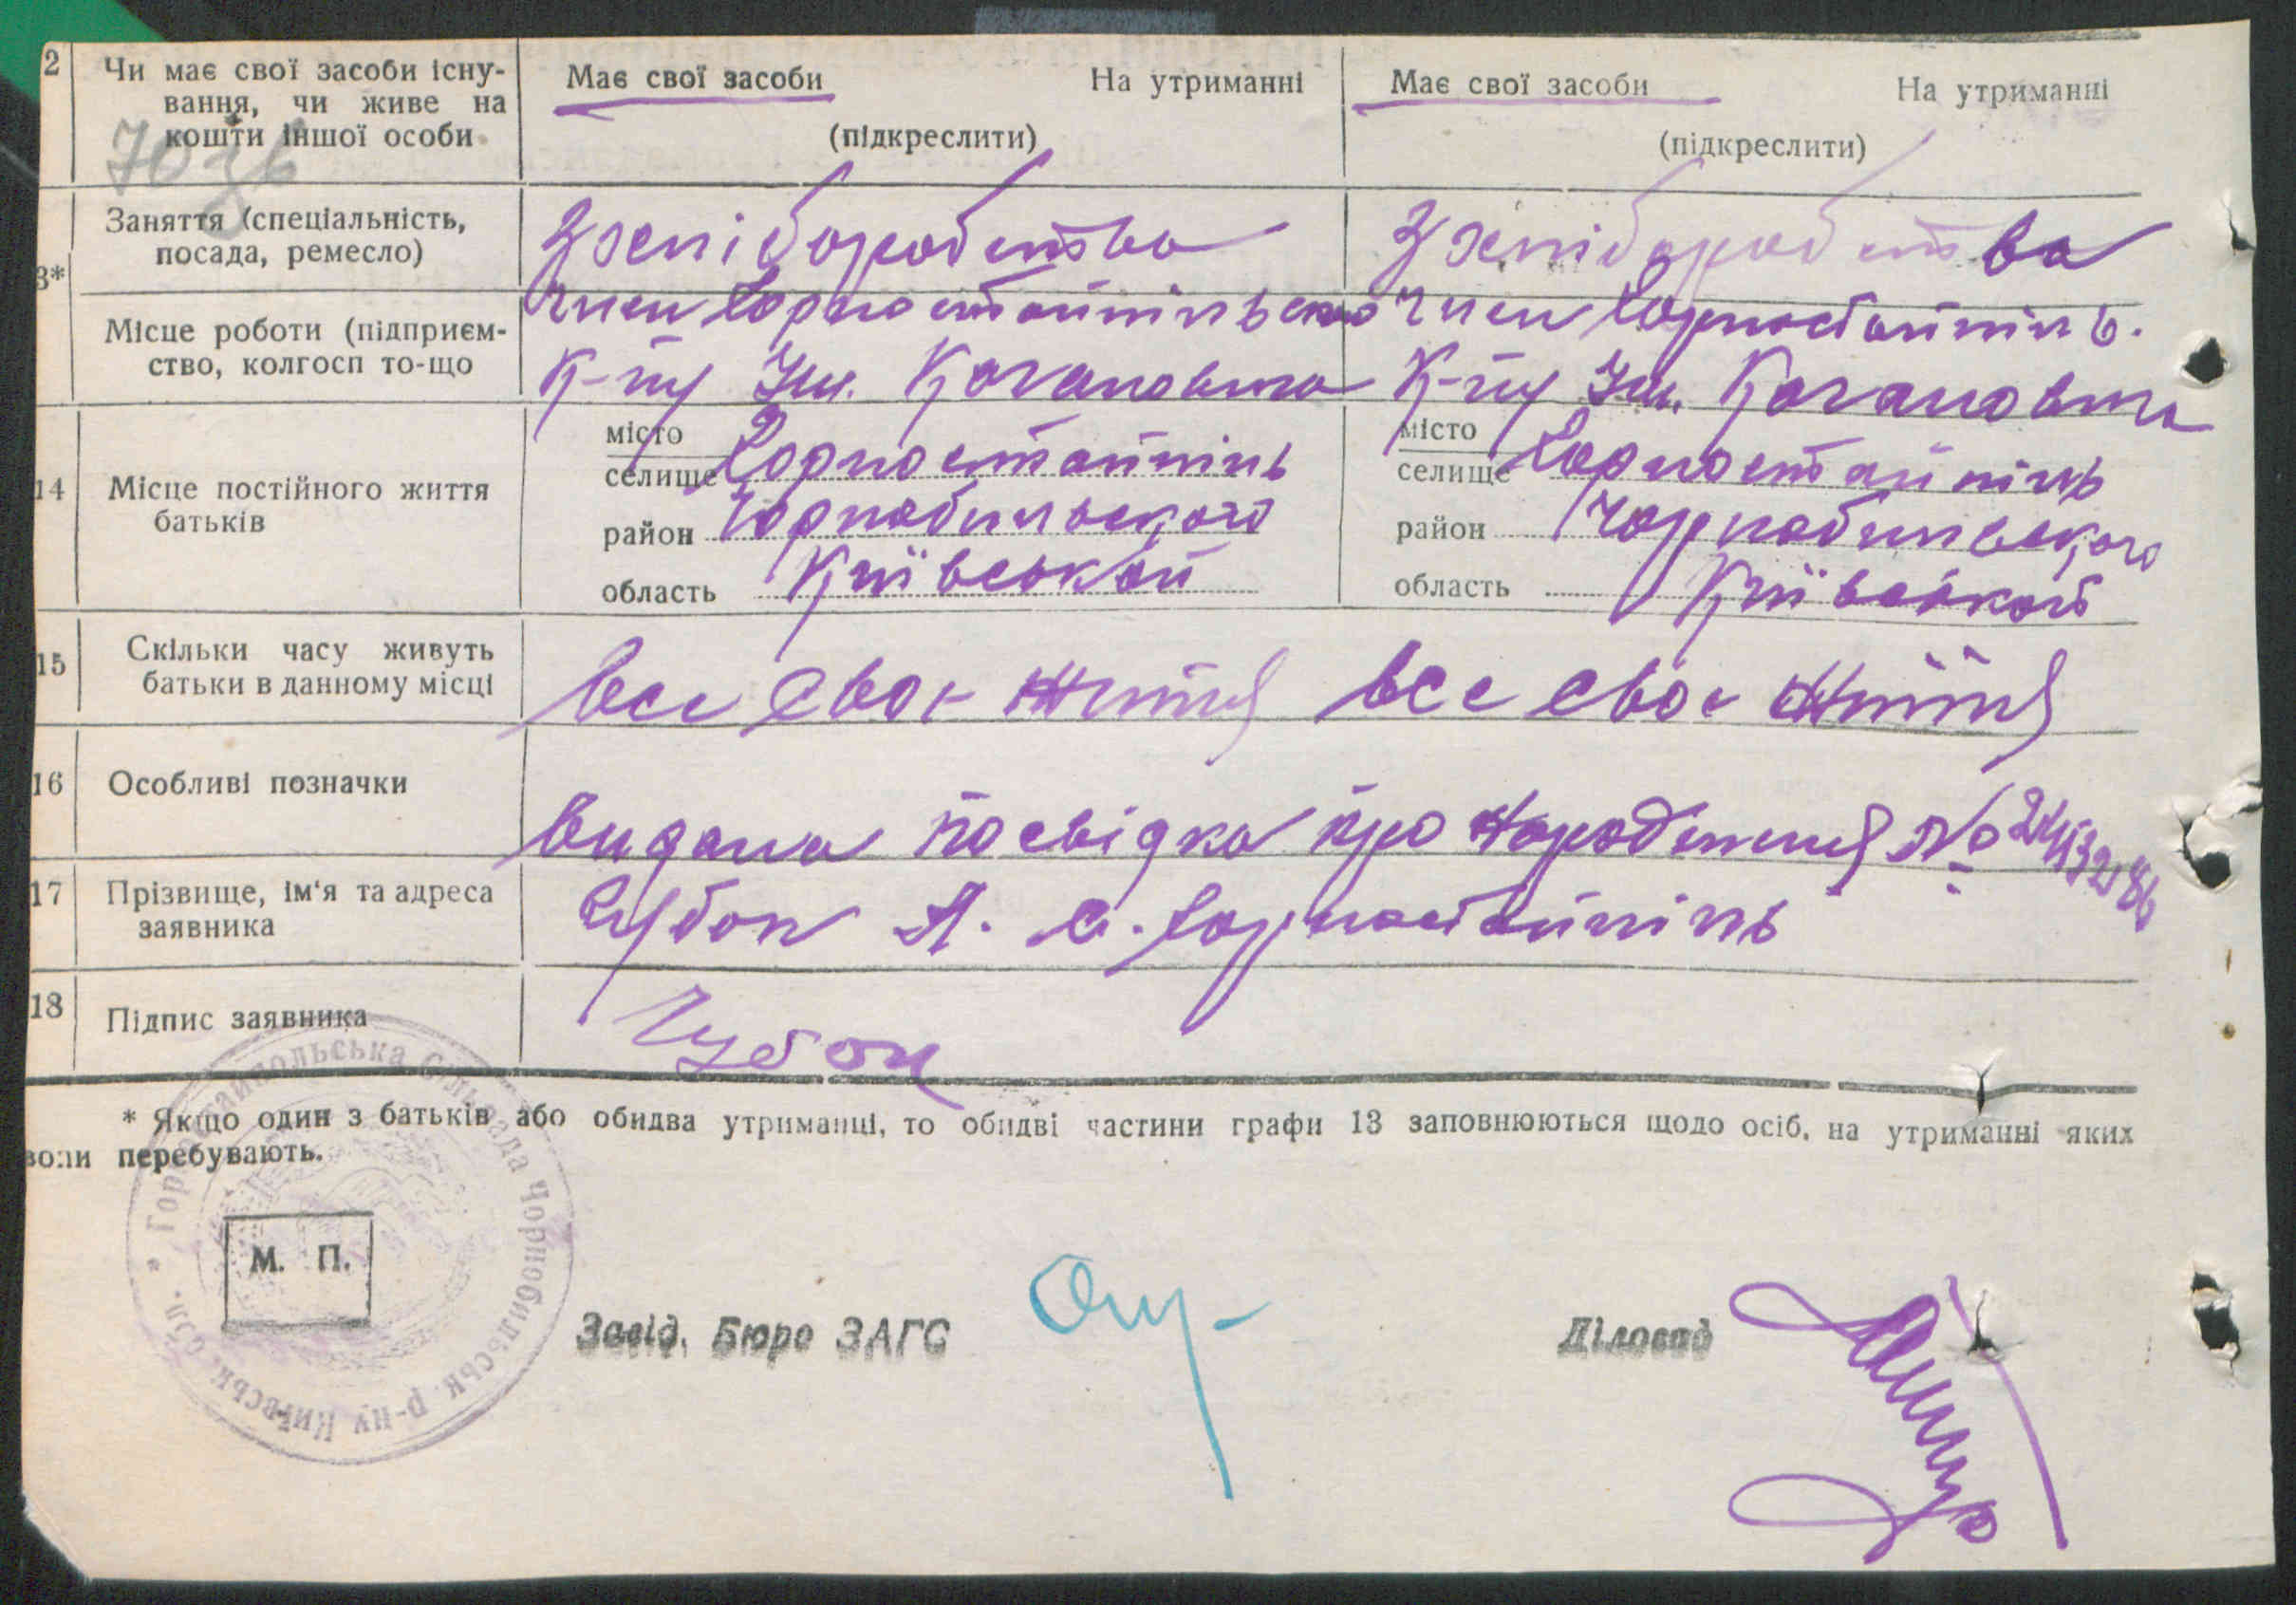 2 Чи має свої засоби існу- Має свої засоби На утриманні Має свої засоби На утриманні
вання, чи живе на
кошти іншої особи (підкреслити) (підкреслити)
Заняття (спеціальність, З хліборобства З хліборобства
посада, ремесло)
3*
член Горностайпільсько член Горностайпіль.
Місце роботи (підприєм-
ство, колгосп то-що К-пу Ім. Кагановича К-пу Ім. Кагановича
місто місто
селище Горностайпіль селище Горностайпіль
14 Місце постійного життя
батьків
район Чорнобильского район Чорнобильського
область Київської область Київської
15 Скільки часу живуть
батьки в данному місці все своє життя все своє життя
16 Особливі позначки
Видана посвідка про народження №
17 Прізвище, ім'я та адреса
заявника Чубок А. С. Горностайпіль
18 Підпис заявника Чубок
* Якщо один з батьків або обидва утриманці, то обидві частини графи 13 заповнюються щодо осіб, на утриманні яких
воли перебувають.
Горностайпольська Сільрада Чорнобильськ. р-ну Київськ. обл.
М. П.
Завід. Бюро ЗАГС Діловод